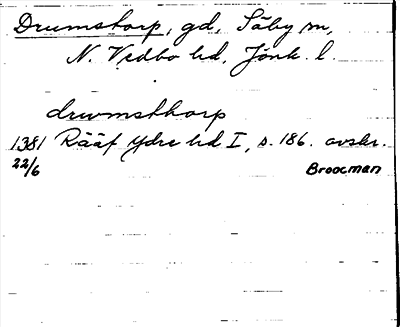 Drumstorp, gd, Säby sn,
N. Vedbo hd, Jönk. l.
drwmsthorp
1381 Rääf Ydre hd I, s. 186. avskr.
22/6 Broocman